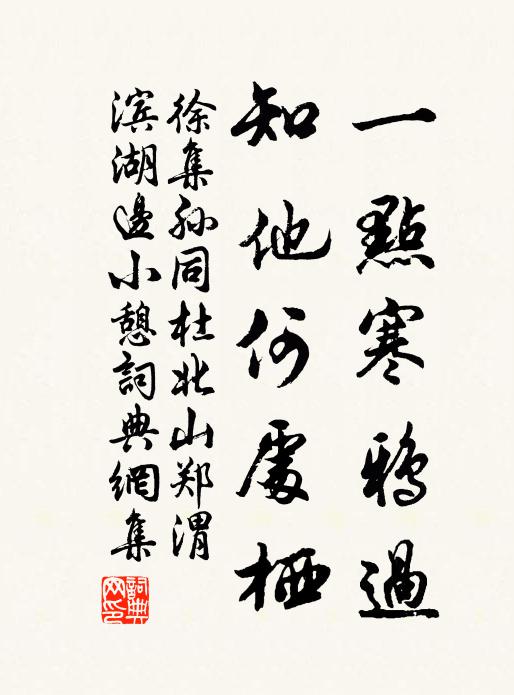 一點寒鴉過
知他何處栖
徐集孙同杜北山郑渭
滨湖邊小憩詞典網集
詞典
网印